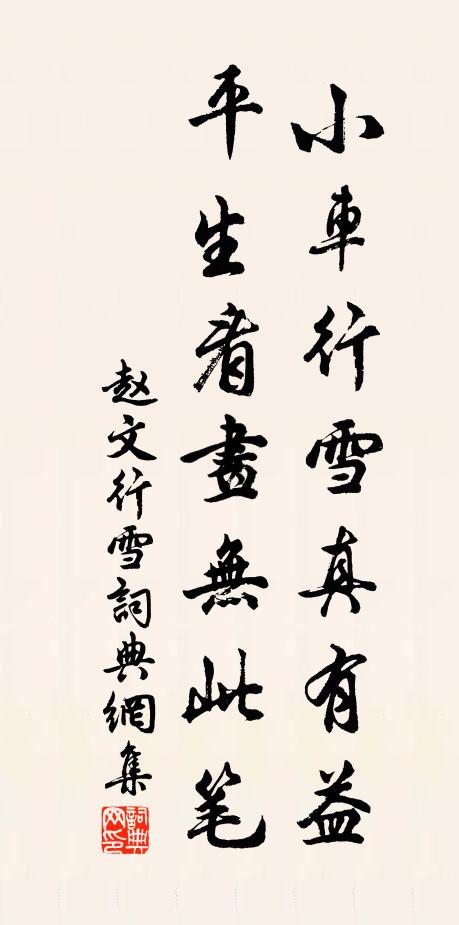 小車行雪真有益
平生看畫無此笔
赵文行雪詞典網集
詞典網印